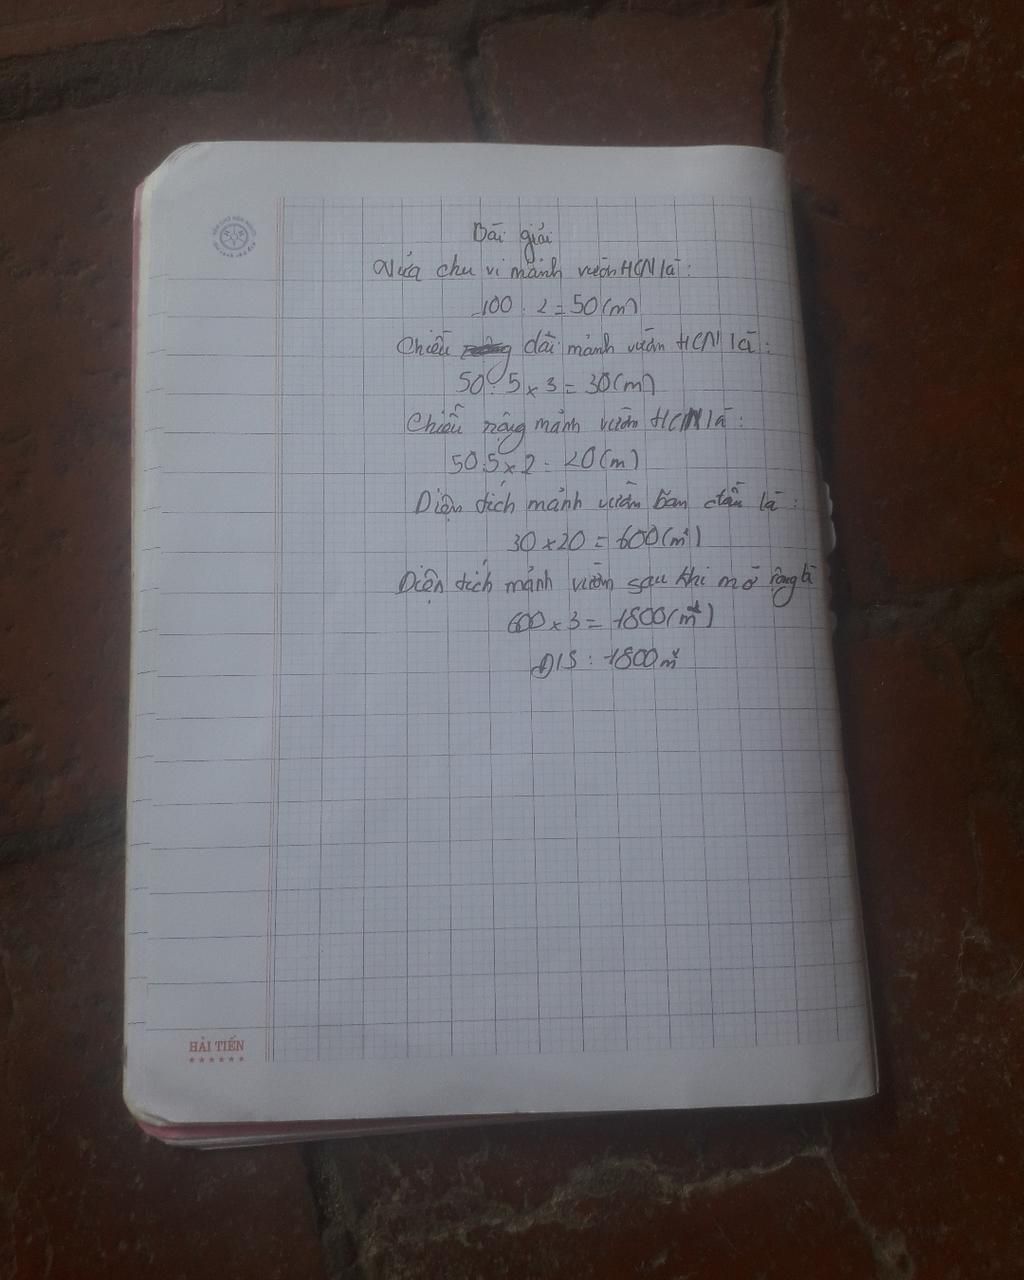 Bài giải
Nửa chu vi mảnh vườn HCN là:
100 : 2 = 50 (m)
Chiều dài mảnh vườn HCN là:
50 : 5 x 3 = 30 (m)
Chiều rộng mảnh vườn HCN là:
50 : 5 x 2 = 20 (m)
Diện tích mảnh vườn ban đầu là:
30 x 20 = 600 (m²)
Diện tích mảnh vườn sau khi mở rộng là
600 x 3 = 1800 (m²)
Đ/S : 1800 m²
HẢI TIẾN